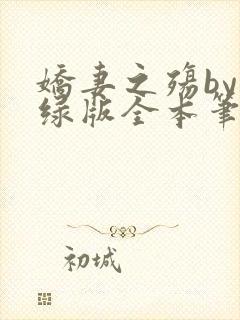 娇妻之殇by
绿版全本笔
初城